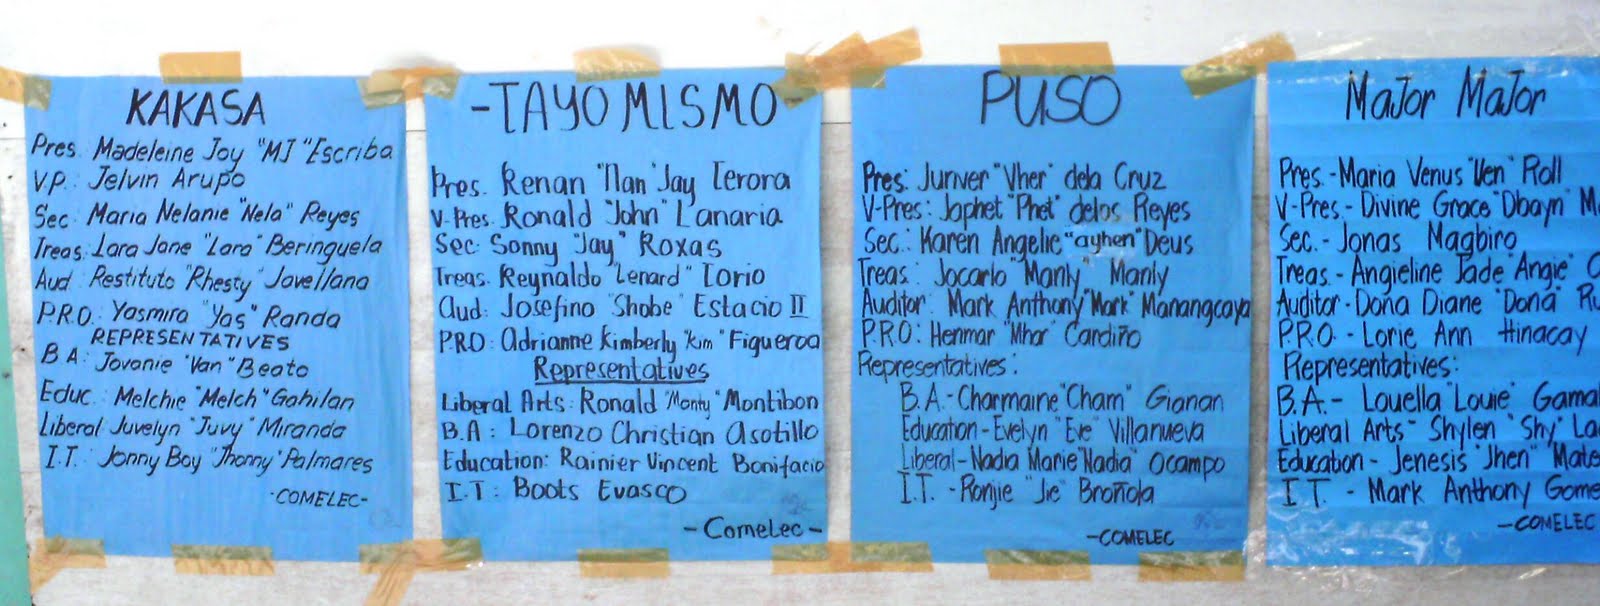 KAKASA
Pres. Madeleine Joy "MJ" Escriba
V.P.: Jelvin Arupo
Sec: Maria Nelanie "Nela" Reyes
Treas: Lara Jane "Lara" Beringuela
Aud: Restituto "Rhesty" Javellana
P.R.O: Yasmira "Yas" Randa
REPRESENTATIVES
B A: Jovanie "Van" Beato
Educ.: Melchie "Melch" Gahilan
Liberal: Juvelyn "Juvy" Miranda
I.T: Jonny Boy "Jhonny" Palmares
-COMELEC-
-TAYO MISMO
Pres. Renan "Nan" Jay Terora
V-Pres. Ronald "John" Lanaria
Sec: Sonny "Jay" Roxas
Treas. Reynaldo "Lenard" Iorio
Aud: Josefino "Shobe" Estacio II
P.R.O: Adrianne Kimberly "Kim" Figueroa
Representatives
Liberal Arts: Ronald "Monty" Montibon
B.A: Lorenzo Christian Asotillo
Education: Rainier Vincent Bonifacio
I.T: Boots Evasco
-Comelec-
PUSO
Pres: Junver "Vher" dela Cruz
V-Pres: Japhet "Phet" delos Reyes
Sec.: Karen Angelie "ayhen" Deus
Treas: Jocarlo "Manly" Manly
Auditor: Mark Anthony "Mark" Manangcaya
P.R.O: Henmar "Mhar" Cardiño
Representatives:
B.A-Charmaine "Cham" Gianan
Education-Evelyn "Eve" Villanueva
Liberal-Nadia Marie "Nadia" Ocampo
I.T-Ronjie "Jie" Broñola
-COMELEC
MaJor MaJor
Pres.-Maria Venus "Ven" Roll
V-Pres-Divine Grace "Dbayn"
Sec.-Jonas Magbiro
Treas-Angieline Jade "Angie"
Auditor-Dona Diane "Dona"
P.R.O.-Lorie Ann Hinacay
Representatives:
B.A.-Louella "Louie"
Liberal Arts-Shylen "Shy"
Education-Jenesis "Jhen"
I.T.-Mark Anthony
-COMELEC